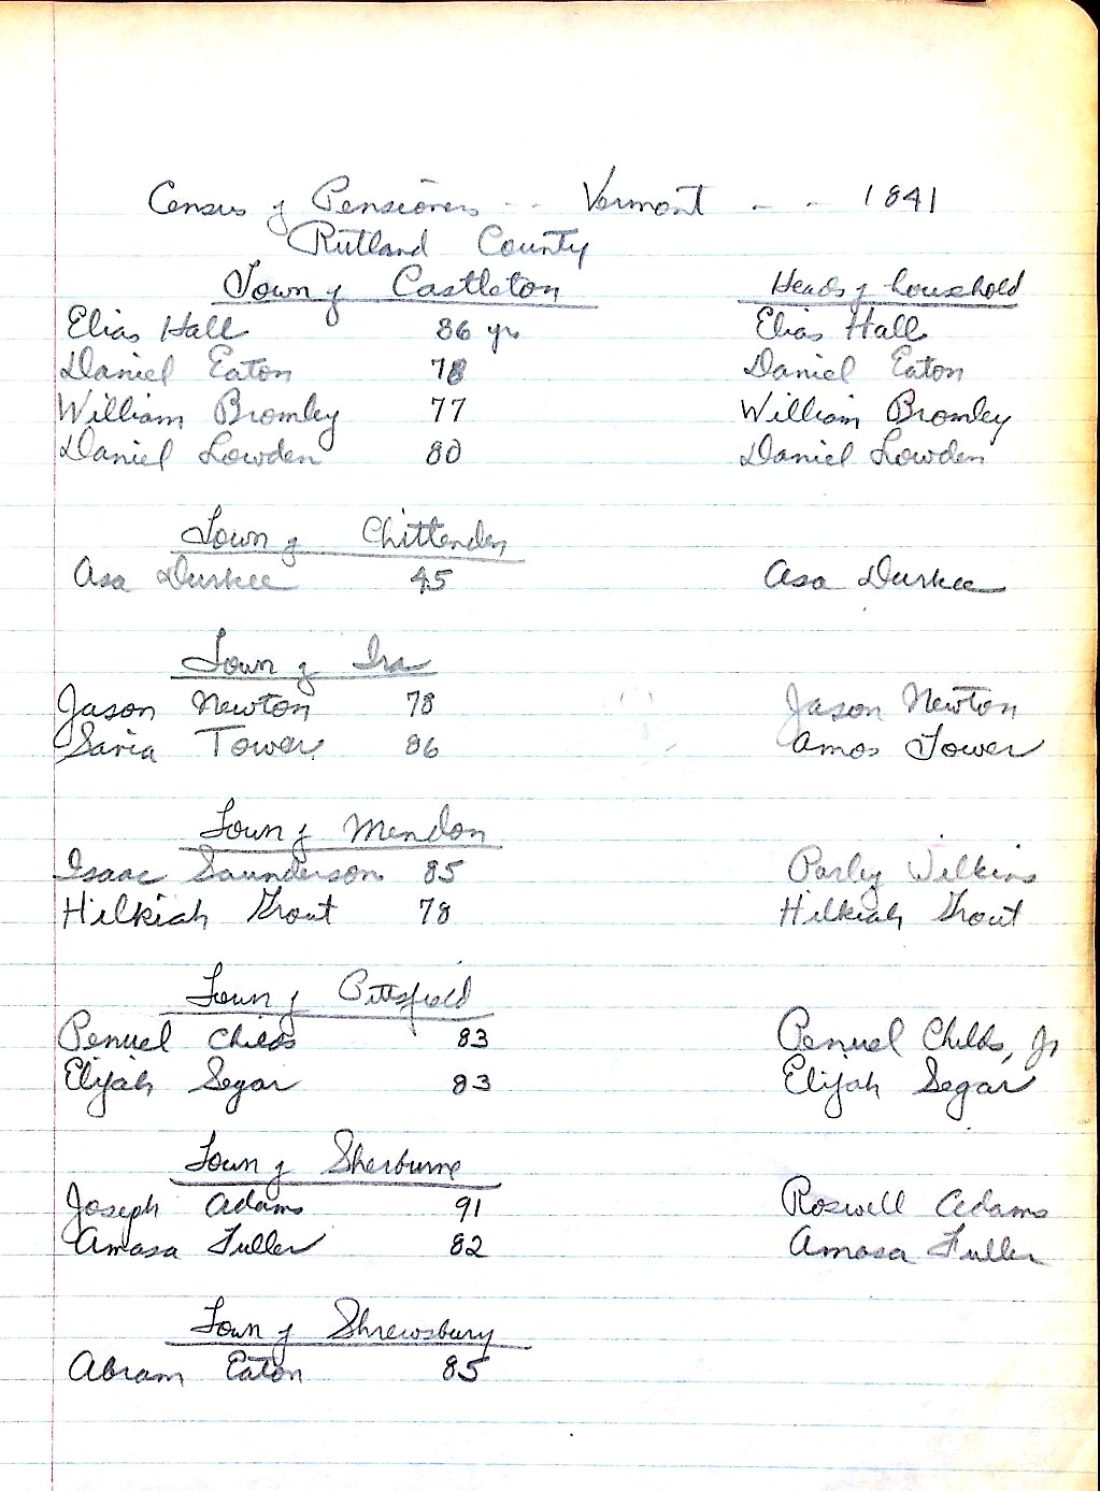 Census of Pensioners -- Vermont -- 1841
Rutland County
Town of Castleton Heads of household
Elias Hall 86 yrs Elias Hall
Daniel Eaton 78 Daniel Eaton
William Bromley 77 William Bromley
Daniel Lowden 80 Daniel Lowden
Town of Chittenden
Asa Durkee 45 Asa Durkee
Town of Ira
Jason Newton 78 Jason Newton
Tower 86 Amos Tower
Town of Mendon
Isaac Saunderson 85 Parley Wilkins
Hilkiah Grout 78 Hilkiah Grout
Town of Pittsfield
Penuel Childs 83 Penuel Childs, Jr
Elijah Segar 83 Elijah Segar
Town of Sherburne
Joseph Adams 91 Roswell Adams
Amasa Fuller 82 Amasa Fuller
Town of Shrewsbury
Abram Eaton 85